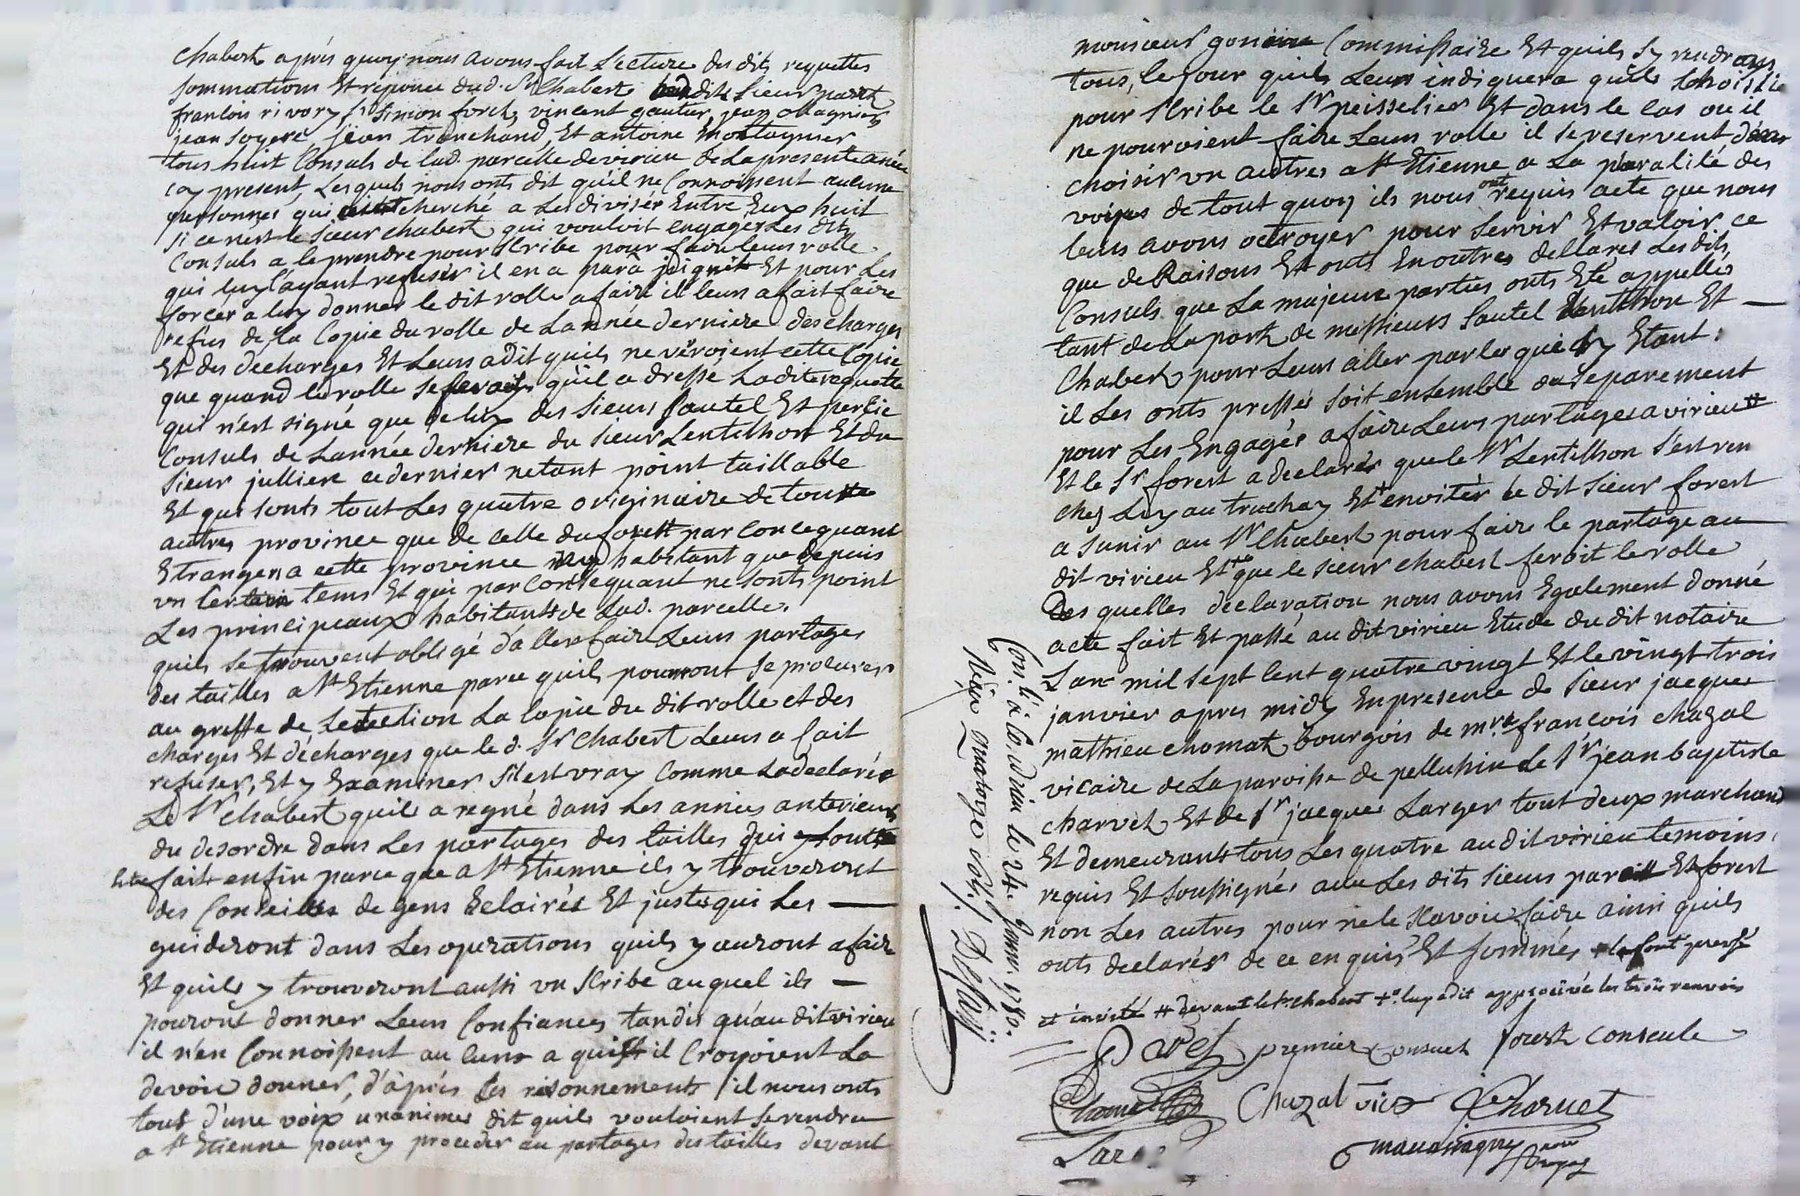 chabert après quoy nous avons fait lecture des dits requettes
sommations Et réponce dud. Sr Chabert dits sieurs paret
francois rivory Sr simon forest vincent gautier jean ollagnier
jean soyere jean tranchand Et antoine montagnier
tous huit Consuls de lad. parcelle de virieu de La presente année
cy present, Les quels nous onts dit qu'il ne Connoissent aucune
personnes qui cherché a Les diviser Entre Eux huit
si ce n'est le sieur chabert qui vouloit engager Les dits
Consuls a le prendre pour scribe pour faire leurs rolle
qui luy layant refuser il en a Et pour Les
forcer a luy donner le dit rolle a faire il leurs a fait faire
refus de la Copie du rolle de Lannée derniere des charges
Et des décharges Et Leurs a dit quils ne veroient cette Copie
que quand le rolle se feroit, qu'il a dressé Ladite requette
qui n'est signé que de luy des sieurs sautel Et
Consuls de Lannée derniere du sieur Lentilhon Et du
sieur jullien ce dernier netant point taillable
Et qui sonts tout Les quatre originaire de toutte
autres province que de celle du forest par Concequant
Etrangers a cette province ny habitant que depuis
un Certain tems Et qui par Consequant ne sonts point
Les principeaux habitants de Lad. parcelle,
quils se trouvent obligé daller faire Leurs partages
des tailles a St Etienne parce quils pourront se procurer
au greffe de Lelection La Copie du dit rolle et des
charges Et décharges que le d. Sr Chabert Leurs a fait
refuser, Et y Examiner s'il est vray Comme La declaré
Le Sr Chabert quil a regné dans Les années anterieurs
du desordre dans Les partages des tailles qui
fait enfin parce que a St Etienne ils y trouveront
des Conseilles de gens Eclairés Et justes qui Les
guideront dans Les operations quils y auront a faire
Et quils y trouveront aussi un scribe auquel ils
pouront donner Leurs Confiances tandis qu'au dit virieu
il n'en Connoissent aucuns a qui il Croyoient La
devoir donner, d'après les résonnements il nous onts
tout d'une voix unanimes dit quils vouloient se rendre
a St Etienne pour y proceder au partages des tailles devant
monsieur Commissaire Et quils sy rendrons
tous, le jour quils Leurs indiquera quils
pour scribe le Sr peisselier Et dans le Cas ou il
ne pourroient faire Leurs rolle il se reservent
choisir un autres a St Etienne a La pluralité des
voixes de tout quoy ils nous ont requis acte que nous
leurs avons octroyer pour servir Et valoir ce
que de Raisons Et onts En outres dellarer Les dits
Consuls que La majeure parties onts Eté appellés
tant de La part de messieurs sautel Lentilhon Et
Chabert pour Leurs aller parler que sy Etant
il Les onts pressés soit ensemble ou separement
pour Les Engagér a faire Leurs partages a virieu #
Et le Sr forest a declarér que le Sr Lentilhon s'est ren
chez Luy au truchay Et envitér le dit sieur forest
a sunir au Sr Chabert pour faire le partage au
dit virieu Et que le sieur chabert feroit le rolle
Des quelles declaration nous avons Egalement donné
acte fait Et passé au dit virieu Etude du dit notaire
Lan mil sept cent quatre vingt Et le vingt trois
janvier apres midy En presence de sieur jacque
mathieu chomat bourgois de mre francois chazal
vicaire de La paroisse de pellussin de Sr jean baptiste
charvet Et de Sr jacque Larger tout deux marchand
Et demeurants tous Les quatre au dit virieu temoins
requis Et soussignés avec Les dits sieurs paret Et forest
non Les autres pour ne le scavoir faire ainsi quils
onts declarér de ce enquis Et sommés
et invité # devant le Sr chabert + luy a dit approuvé les trois renvois
Paret premier Consuel forest Conseule
Chomat Chazal vice Charvet
Larger
Con.lé à Co. le 24 Janv. 1780.
Reçu quatorze sols.